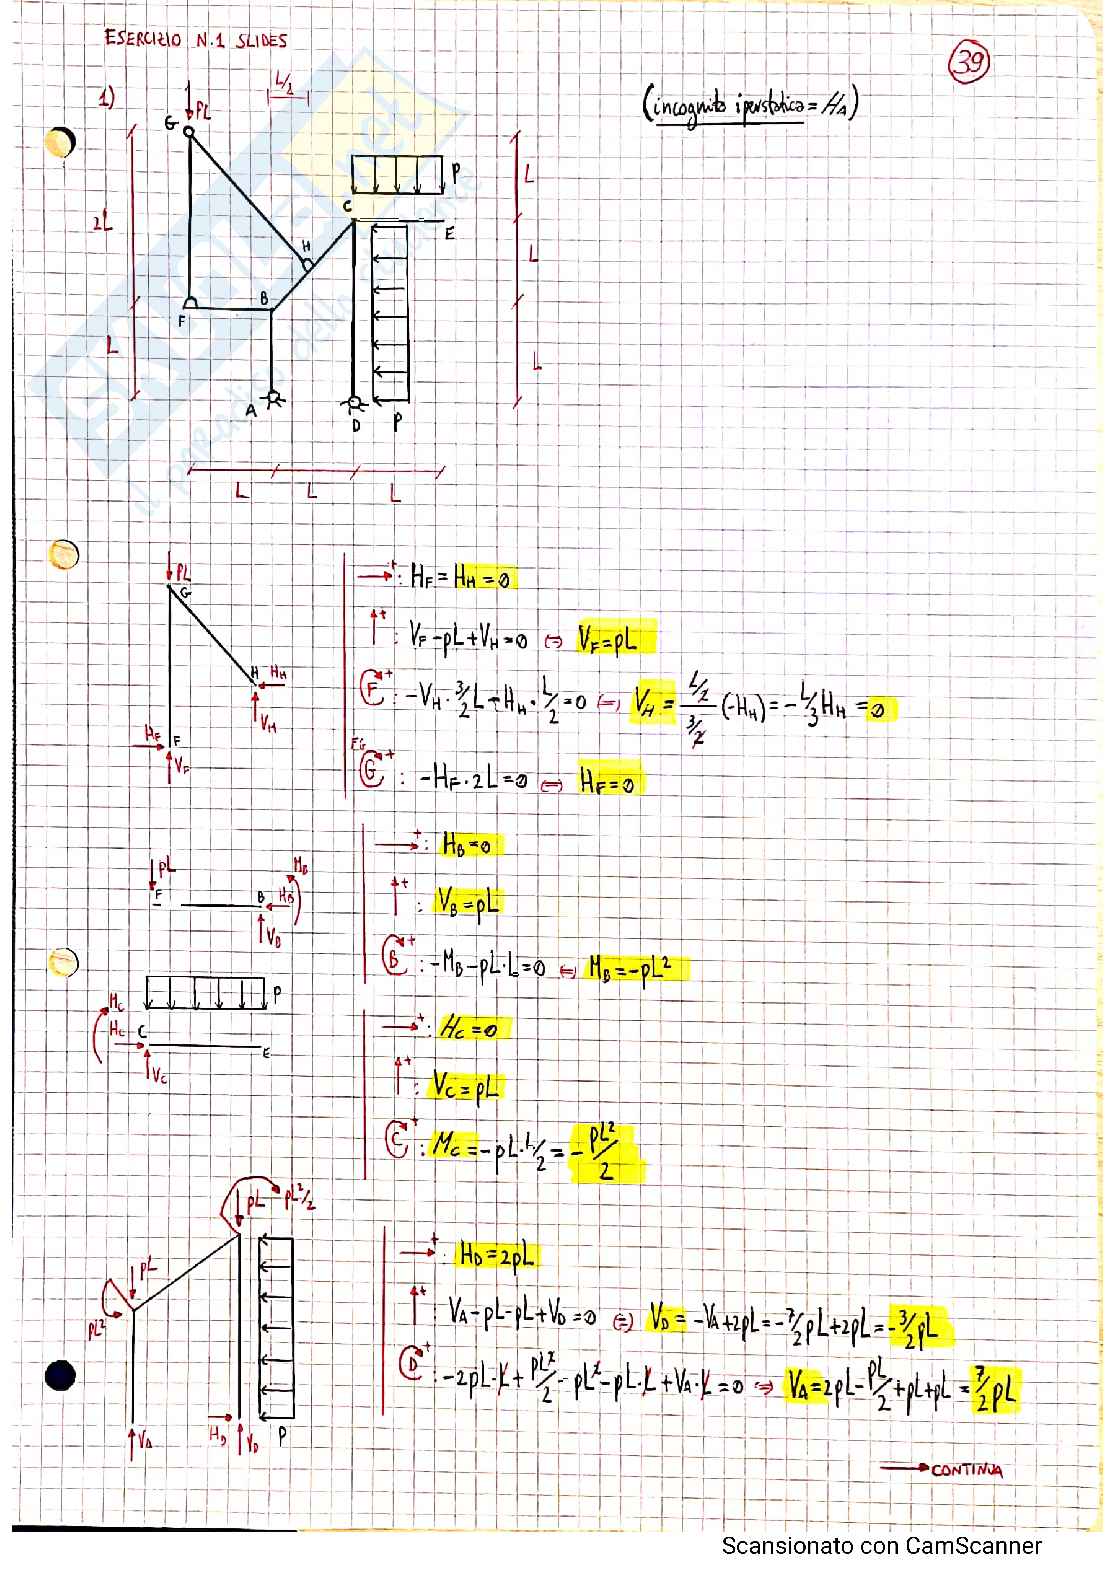 ESERCIZIO N.1 SLIDES
39
1)
(incognita iperstatica = HA)
PL
L/2
G
2L
L
F
B
H
C
P
E
L
L
L
A
D
P
L
L
L
PL
G
H
HH
VH
HF
F
VF
→+: HF = HH = 0
↑+: VF - pL + VH = 0 ⇔ VF = pL
F+: -VH · 3/2 L - HH · L/2 = 0 ⇔ VH = L/2 / 3/2 (-HH) = -L/3 HH = 0
FG
G+: -HF · 2L = 0 ⇔ HF = 0
pL
F
B
MB
HB
VB
→+: HB = 0
↑+: VB = pL
B+: -MB - pL · L = 0 ⇔ MB = -pL²
P
MC
HC
C
E
VC
→+: HC = 0
↑+: VC = pL
C+: MC = -pL · L/2 = -pL²/2
pL
pL²/2
pL
pL²
VA
HD
VD
P
→+: HD = 2pL
↑+: VA - pL - pL + VD = 0 ⇔ VD = -VA + 2pL = -7/2 pL + 2pL = -3/2 pL
D+: -2pL · L + pL²/2 - pL² - pL · L + VA · L = 0 ⇒ VA = 2pL - pL/2 + pL + pL = 7/2 pL
→ CONTINUA
Scansionato con CamScanner